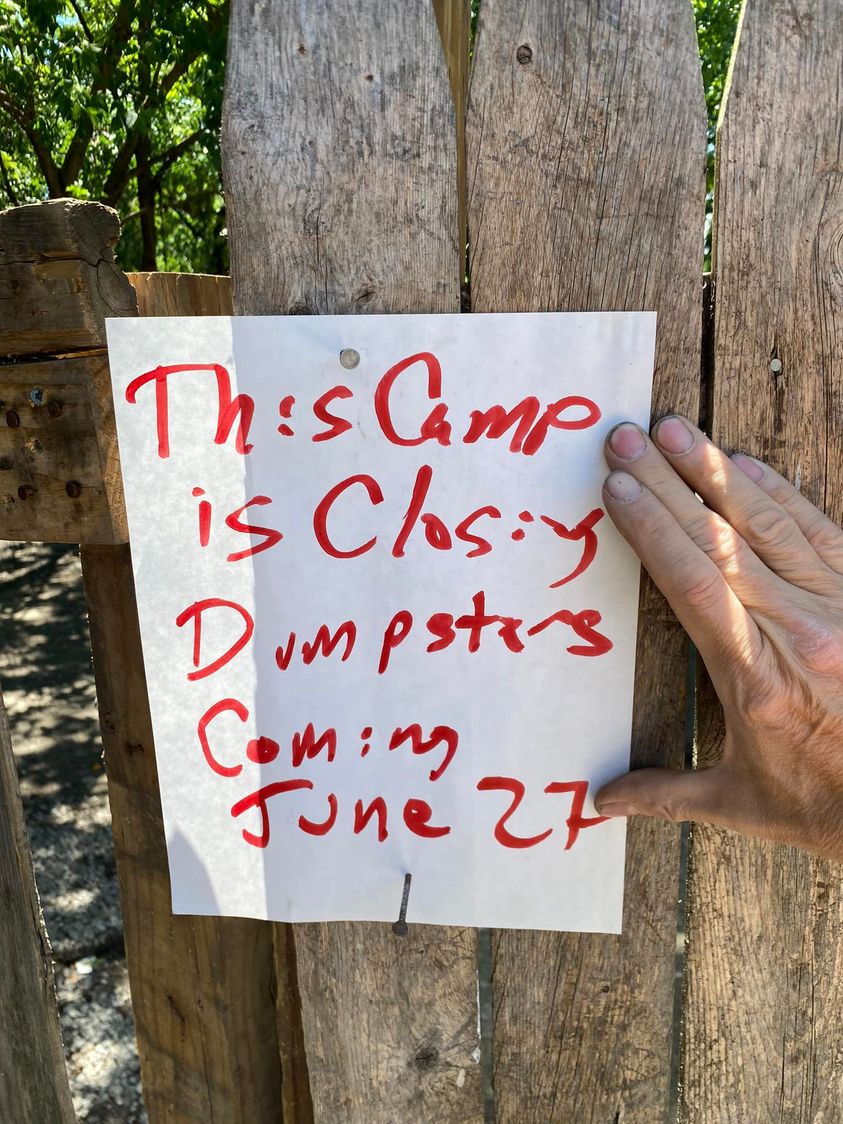 This Camp
is Closing
Dumpsters
Coming
June 27